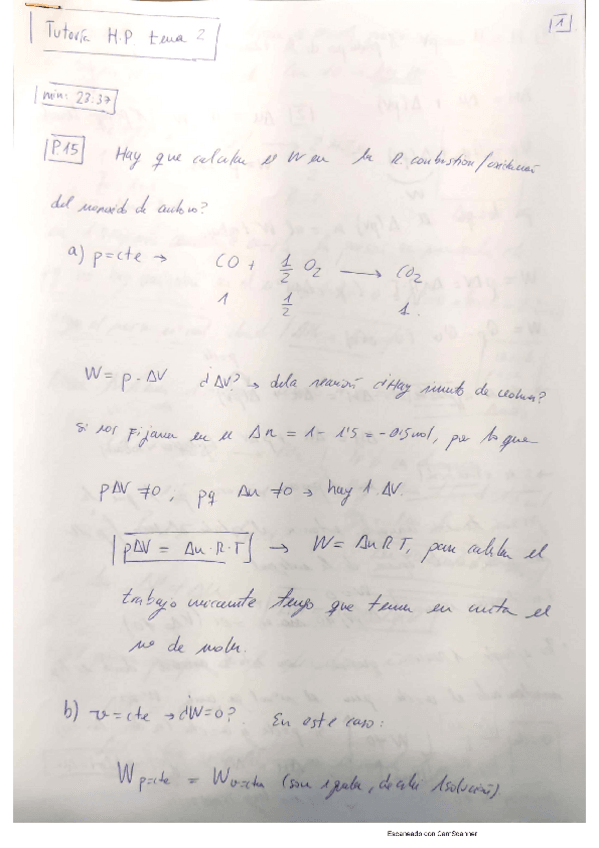 Tutoría H.P. tema 2
1
min: 23:37
P.15 Hay que calcular el W en la R. combustion/oxidación
del monoxido de carbono?
a) p=cte → CO + 1/2 O2 → CO2
1 1/2 1.
W = p · ΔV ¿ΔV? → de la reacción ¿Hay de?
si nos fijamos en el Δn = 1 - 1'5 = -0,5 mol, por lo que
pΔV ≠0, pq Δn ≠0 → hay 1 ΔV.
pΔV = Δn·R·T → W= Δn R T, para calcular el
trabajo unicamente tengo que tener en cuenta el
nº de moles.
b) v=cte → ¿W=0? En este caso:
Wp=cte = Wv=cte (son iguales, 1 solución).
Escaneado con CamScanner